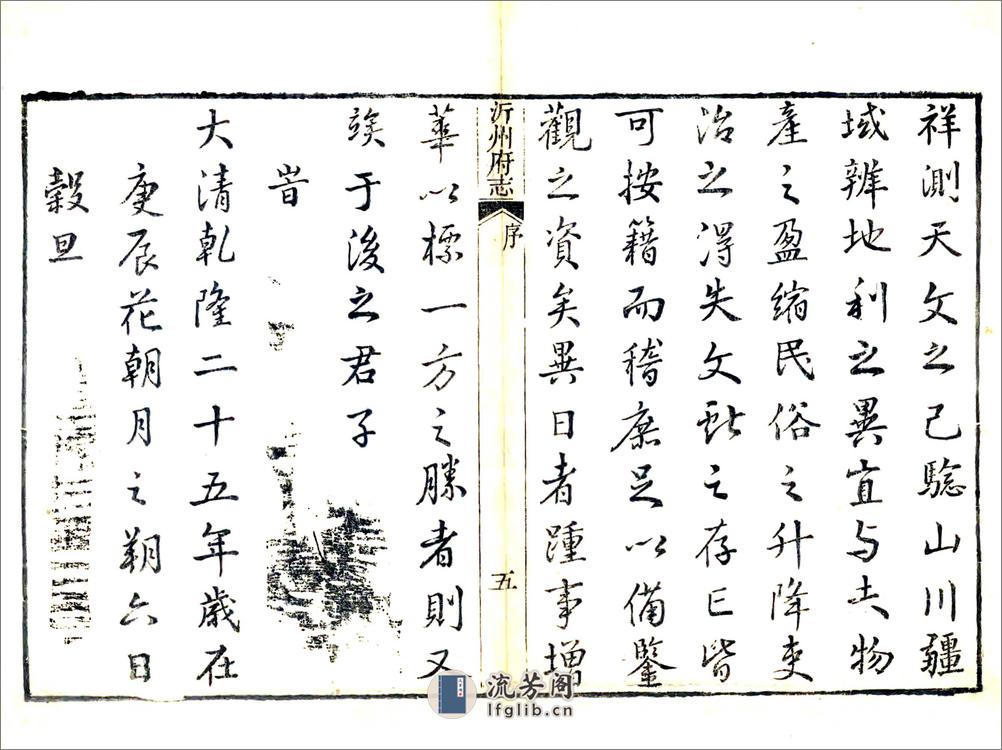 祥測天文之已騐山川疆
域辨地利之異宜与夫物
產之盈縮民俗之升降吏
治之得失文獻之存亡皆
可按籍而稽庶足以備鑒
觀之資矣異日者踵事增
沂州府志 序 五
華以標一方之勝者則又
竢于後之君子
旹
大清乾隆二十五年歲在
庚辰花朝月之朔六日
穀旦
流芳阁
lfglib.cn